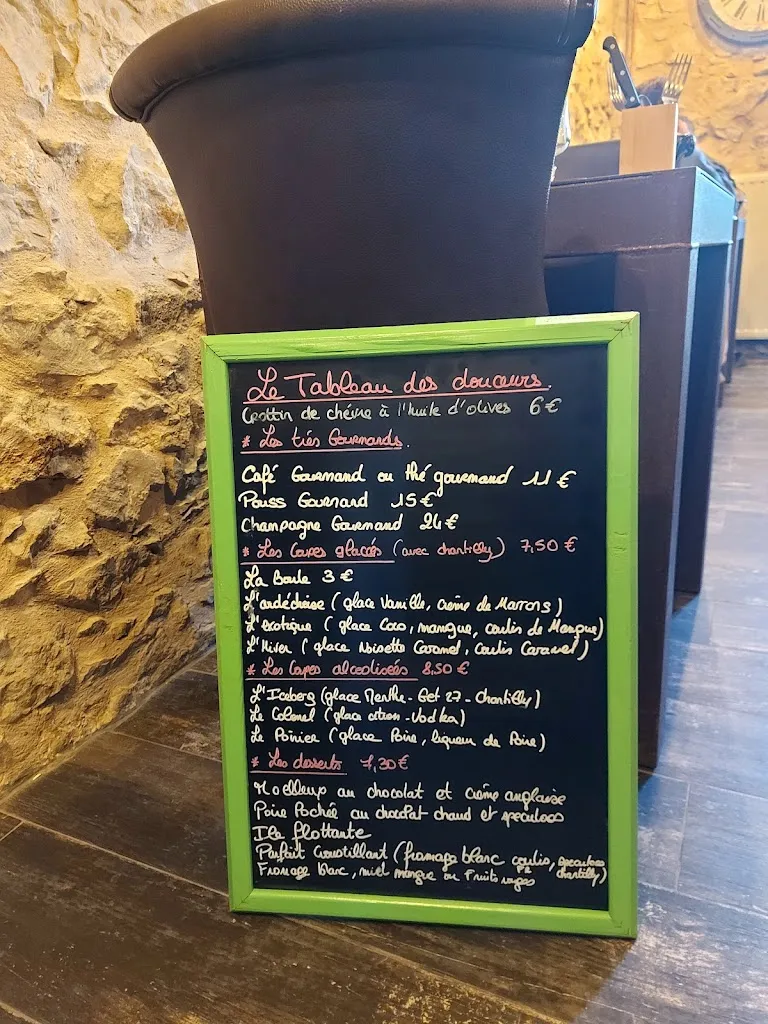 Le Tableau des douceurs.
Crottin de chèvre à l'huile d'olives 6€
* Les très Gourmands.
Café Gourmand ou thé gourmand 11€
Pouss Gourmand 15€
Champagne Gourmand 24€
* Les Coupes glacées (avec chantilly) 7,50€
La Boule 3€
L'ardéchoise (glace Vanille, crème de Marrons)
L'exotique (glace Coco, mangue, coulis de Mangue)
L'Hiver (glace Noisette Caramel, Coulis Caramel)
* Les Coupes alcoolisées 8,50€
L'Iceberg (glace Menthe - Get 27 - Chantilly)
Le Colonel (glace citron - Vodka)
Le Poirier (glace Poire, liqueur de Poire)
* Les desserts 7,30€
Moelleux au chocolat et crème anglaise
Poire Pochée au chocolat chaud et speculoos
Ile flottante
Parfait Croustillant (fromage blanc coulis, speculoos chantilly)
Fromage blanc, miel mangue ou Fruits rouges